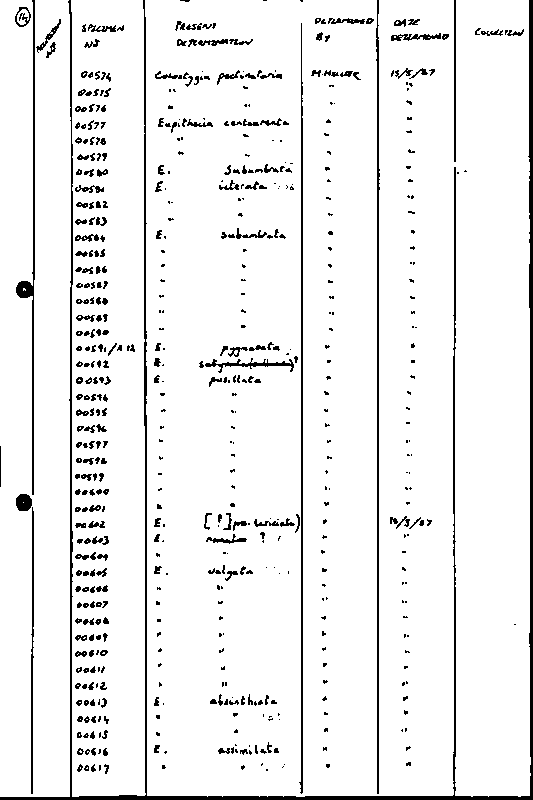 14
SPECIMEN NO PRESENT DETERMINATION DETERMINED BY DATE DETERMINED COLLECTION
00574 Colostygia pectinataria M. HULLER 15/5/87
00575 " " " "
00576 " " " "
00577 Eupithecia centaureata " "
00578 " " " "
00579 " " " "
00580 E. subumbrata " "
00581 E. icterata " "
00582 " " " "
00583 " " " "
00584 E. subumbrata " "
00585 " " " "
00586 " " " "
00587 " " " "
00588 " " " "
00589 " " " "
00590 " " " "
00591/A12 E. pygmaeata " "
00592 E. ? " "
00593 E. pusillata " "
00594 " " " "
00595 " " " "
00596 " " " "
00597 " " " "
00598 " " " "
00599 " " " "
00600 " " " "
00601 " " " "
00602 E. [ ? ] " 18/5/87
00603 E. ? " "
00604 " " " "
00605 E. vulgata " "
00606 " " " "
00607 " " " "
00608 " " " "
00609 " " " "
00610 " " " "
00611 " " " "
00612 " " " "
00613 E. absinthiata " "
00614 " " " "
00615 " " " "
00616 E. assimilata " "
00617 " " " "